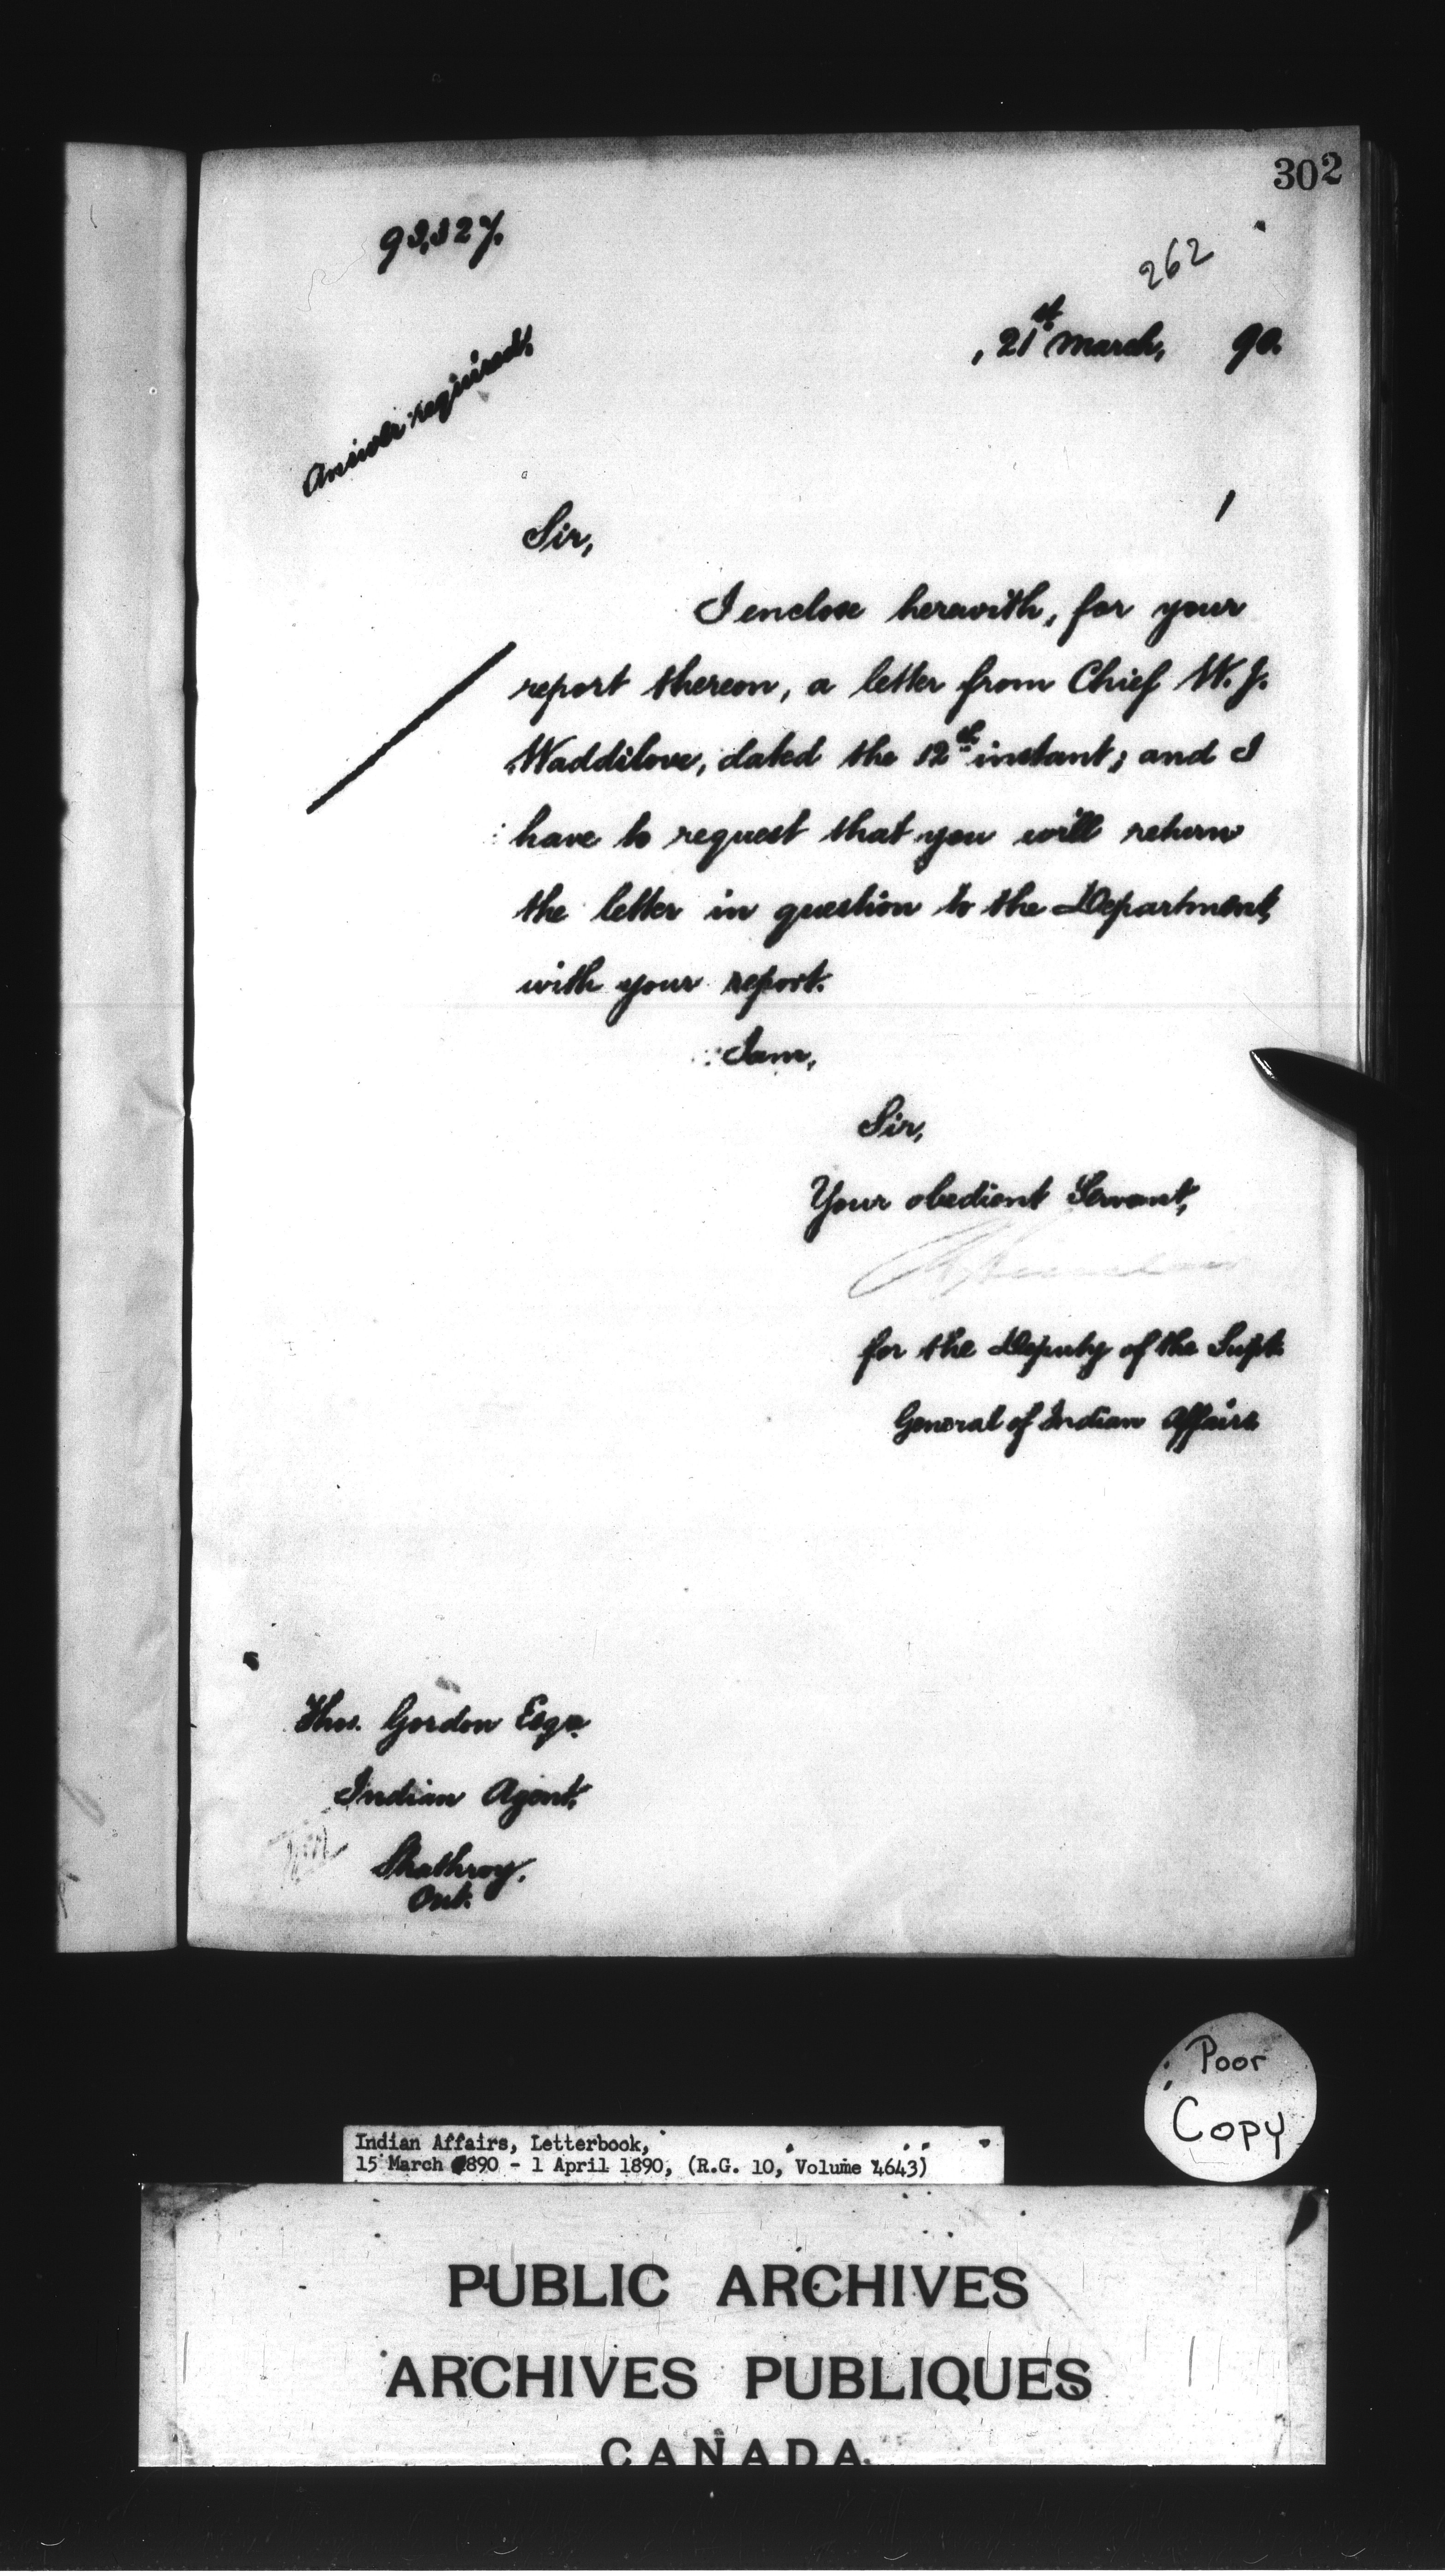 302
93,327.
262
, 21st March, 90.
Answer required.
Sir,
I enclose herewith, for your
report thereon, a letter from Chief W. J.
Waddilove, dated the 12th instant; and I
have to request that you will return
the letter in question to the Department,
with your report.
I am,
Sir,
Your obedient Servant,
for the Deputy of the Supt.
General of Indian Affairs
Thos. Gordon Esqre
Indian Agent,
Strathroy.
Ont.
Poor
Copy
Indian Affairs, Letterbook,
15 March 1890 - 1 April 1890, (R.G. 10, Volume 4643)
PUBLIC ARCHIVES
ARCHIVES PUBLIQUES
CANADA